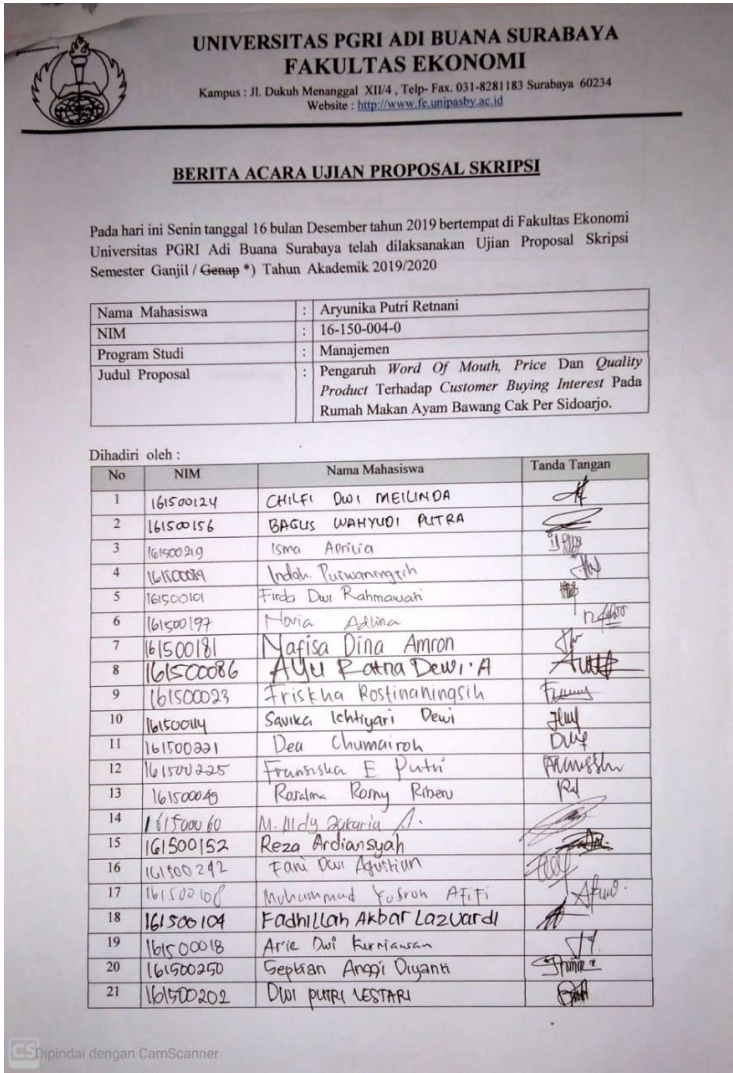 UNIVERSITAS PGRI ADI BUANA SURABAYA
FAKULTAS EKONOMI
Kampus : Jl. Dukuh Menanggal XII/4 , Telp- Fax. 031-8281183 Surabaya 60234
Website : http://www.fe.unipasby.ac.id
BERITA ACARA UJIAN PROPOSAL SKRIPSI
Pada hari ini Senin tanggal 16 bulan Desember tahun 2019 bertempat di Fakultas Ekonomi
Universitas PGRI Adi Buana Surabaya telah dilaksanakan Ujian Proposal Skripsi
Semester Ganjil / Genap *) Tahun Akademik 2019/2020
Nama Mahasiswa : Aryunika Putri Retnani
NIM : 16-150-004-0
Program Studi : Manajemen
Judul Proposal : Pengaruh Word Of Mouth, Price Dan Quality
Product Terhadap Customer Buying Interest Pada
Rumah Makan Ayam Bawang Cak Per Sidoarjo.
Dihadiri oleh :
No NIM Nama Mahasiswa Tanda Tangan
1 161500124 CHILFI DWI MEILINDA
2 161500156 BAGUS WAHYUDI PUTRA
3 161500219 Isma Aprilia
4 Indah Purwaningsih
5 161500101 Firda Dwi Rahmawati
6 161500197 Novia Adlina
7 161500181 Nafisa Dina Amron
8 161500086 AYU Ratna Dewi.A
9 161500023 Friskha Rostinaningsih
10 Savika Ichtiyari Dewi
11 161500221 Dea Chumairoh
12 161500225 Fransiska E Putri
13 161500049 Rosalina Rosny Riberu
14 161500060 M. Aldy Zakaria A.
15 161500152 Reza Ardiansyah
16 161500242 Fani Dwi Agustian
17 161500108 Muhammad Yusron Afifi
18 161500104 Fadhillah Akbar Lazuardi
19 161500018 Arie Dwi Kurniawan
20 161500250 Septian Anggi Diyanti
21 161500202 DWI PUTRI LESTARI
CS Dipindai dengan CamScanner